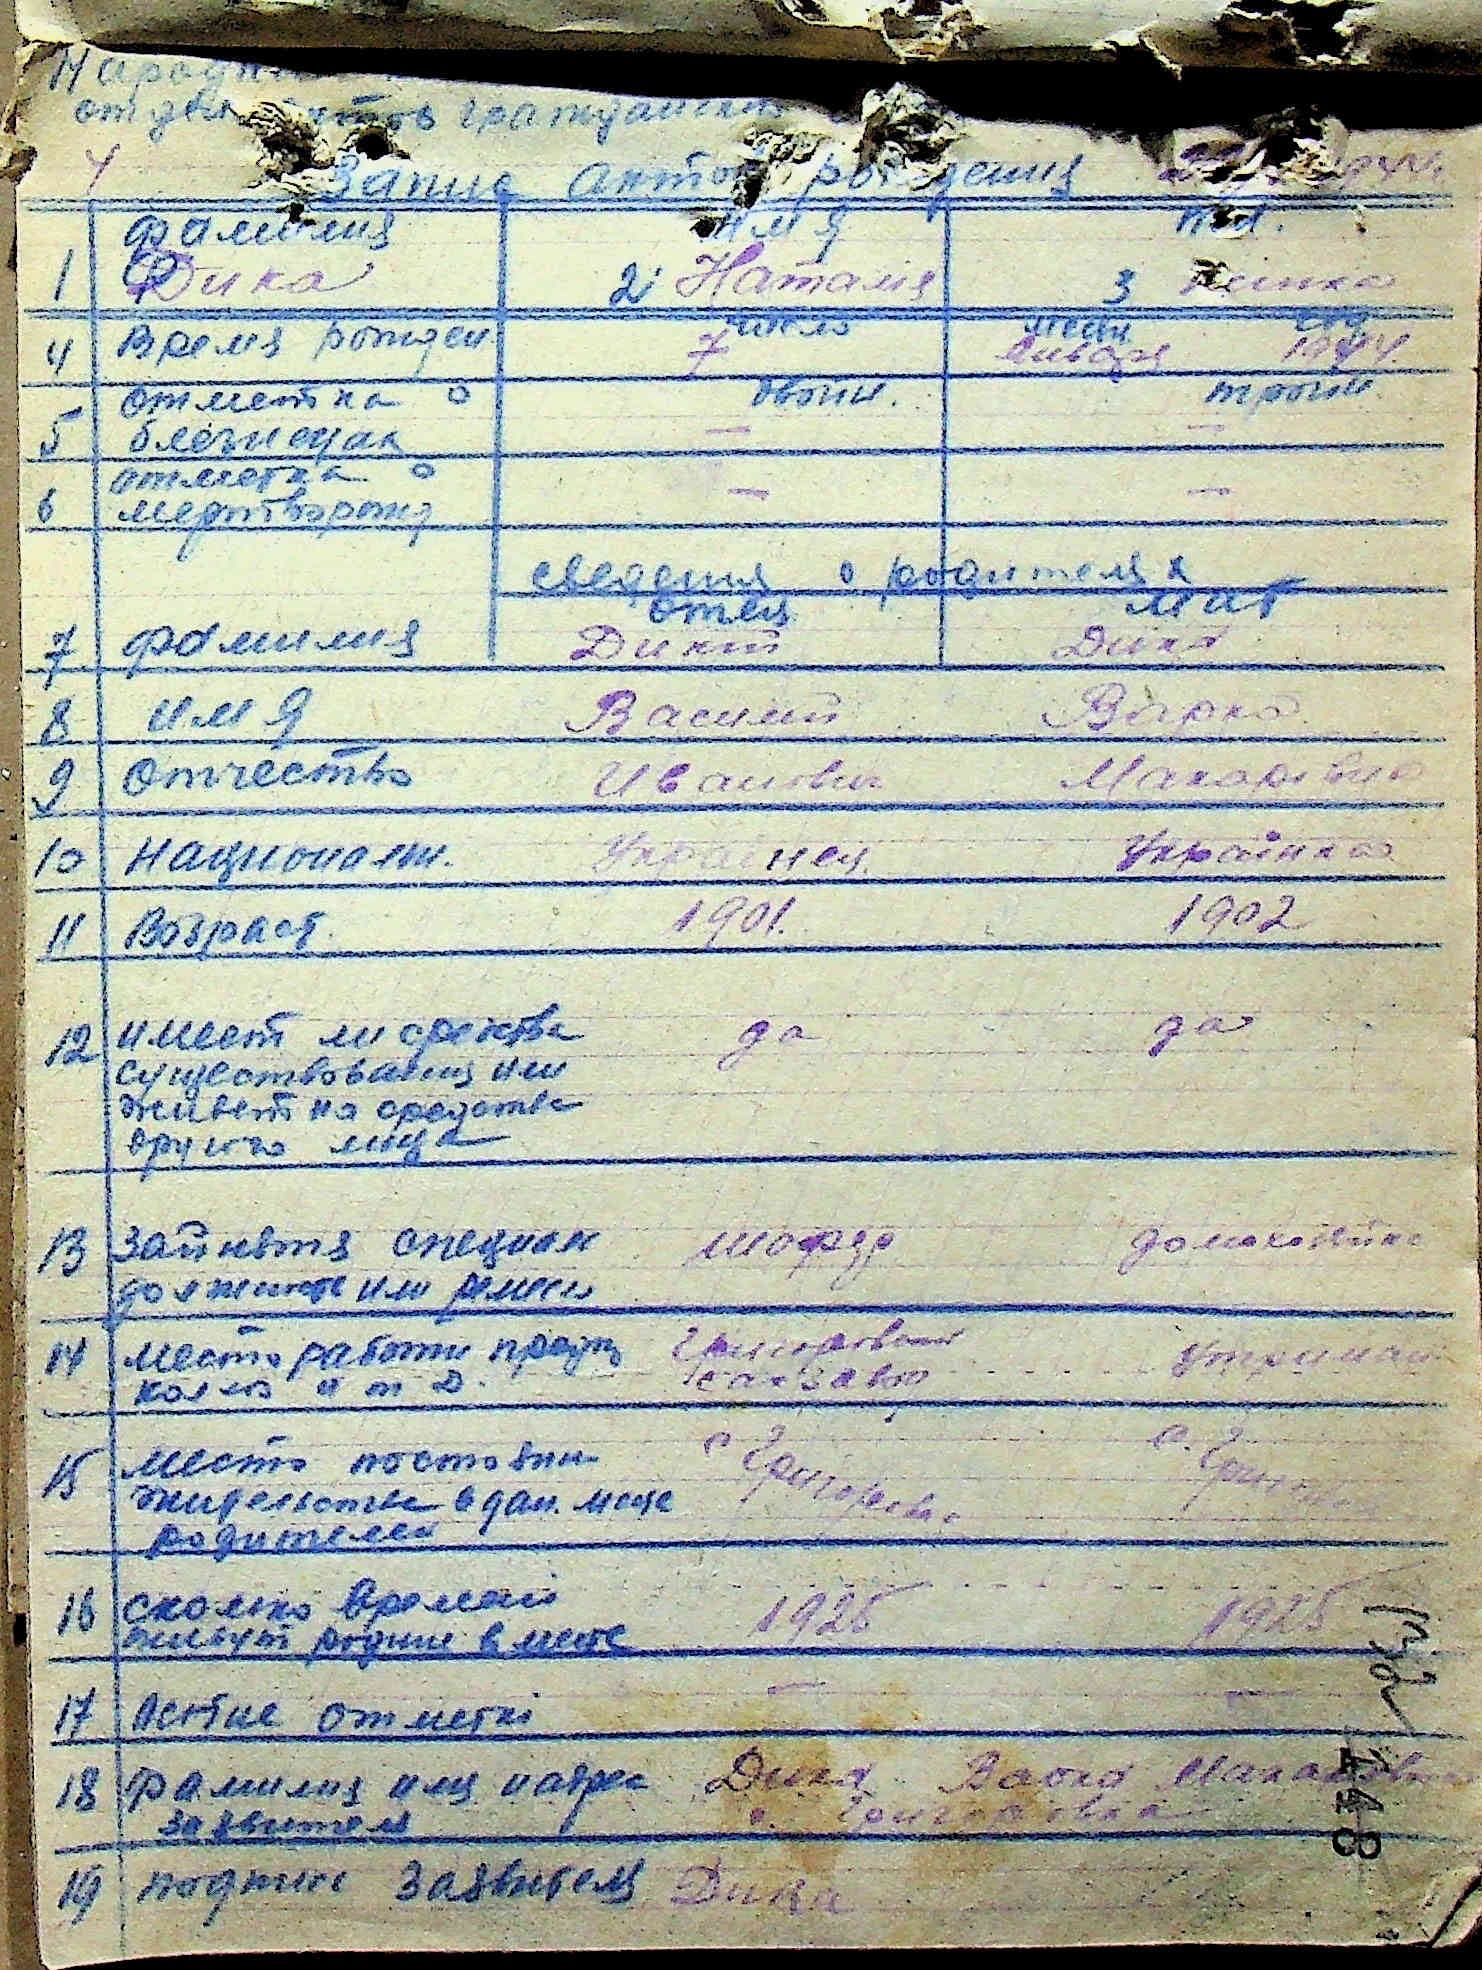 отдел актов гражданск
4 Запис актов рождения
фамилия имя пол.
1 Дика 2 Наталія 3 жинка
4 Время рожден. число 7 месяц января год 1944.
5 отметка о двойн. тройн.
близнецах — —
6 отметка о — —
мертворожд
сведения о родителях
отец мат
7 фамилия Дикий Дика
8 имя Василий Варка
9 Отчество Иванович Макаровна
10 Национальн. Украінец. Украінка
11 Возраст. 1901. 1902
12 имеет ли средства да да
существования или
живет на средства
другого лица
13 Занятия специальн шофер домохозяйка
должность или ремесло
14 место работы предпр Григоровский утриман.
колхоз и т д. сахзавод
15 место постоянн с Григоровка с.
жительства в дан. месте
родителей
16 сколько времени 1925 1925
живут родит в месте
17 отметкі — —
18 Фамилия имя и адрес Дика Варка Макаровна
заявителя с. Григоровка
19 подпис заявителя Дика
148